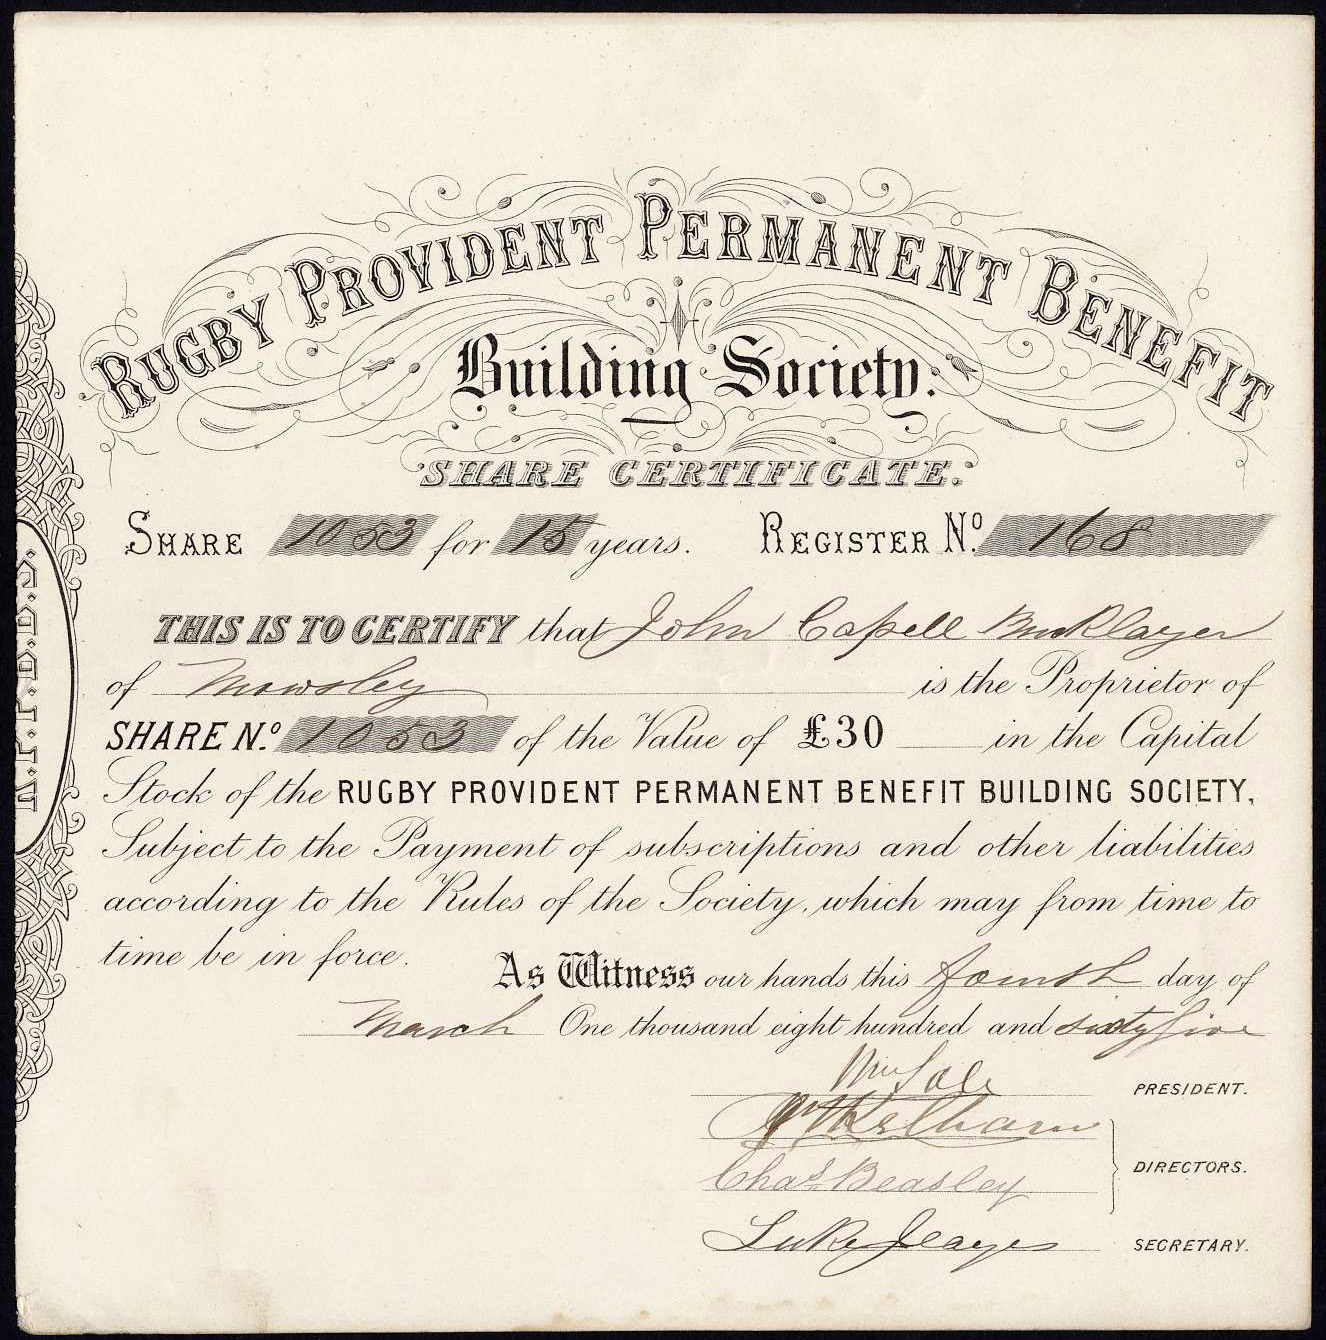 RUGBY PROVIDENT PERMANENT BENEFIT
Building Society.
SHARE CERTIFICATE.
SHARE 1053 for 15 years. REGISTER No. 168
THIS IS TO CERTIFY that John Capell Bucklayer
of Mowsley is the Proprietor of
SHARE No. 1053 of the Value of £30 in the Capital
Stock of the RUGBY PROVIDENT PERMANENT BENEFIT BUILDING SOCIETY,
Subject to the Payment of subscriptions and other liabilities
according to the Rules of the Society, which may from time to
time be in force.
As Witness our hands this fourth day of
March One thousand eight hundred and sixty five
Wm Sale PRESIDENT.
Kelham
Chas Beasley DIRECTORS.
Luke Jeayes SECRETARY.
R.P.P.B.B.S.